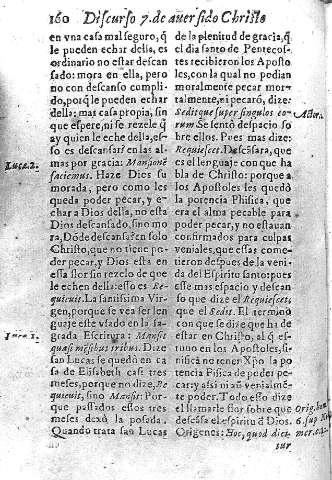 160 Discurso 7. de auer sido Christo
en vna casa mal seguro, q̃
le pueden echar della, es
ordinario no estar descan
sado: mora en ella, pero
no con descanso cumpli-
do, porq̃ le pueden echar
della: mas casa propia, sin
que espere, ni se rezele q̃
ay quien le eche della, es-
so es descansar en las al-
mas por gracia: Mansionẽ
faciemus. Haze Dios su
morada, pero como les
queda poder pecar, y e-
char a Dios della, no esta
Dios descansado, sino mo
ra. Dõde descãsa es en solo
Christo, que no tiene po-
der pecar, y Dios esta en
esta flor sio rezelo de que
le echen della: esso es Re-
quieuit. La santissima Vir-
gen, porque se vea ser len
guaje este vsado en la sa-
grada Escritura: Mansit
quasi mẽsibus tribus. Dize
san Lucas se quedò en ca
sa de Elisabeth casi tres
meses, porque no dize, Re
quieuit, sino Mansit: Por-
que passados essos tres
meses dexò la posada.
Quando trata san Lucas
Luca. 2.
Luca. 1.
de la plenitud de gracia, q̃
el dia santo de Pentecos-
tes recibieron los Aposto
les, con la qual no podian
moralmente pecar mor-
talmente, ni pecarõ, dize:
Sedit que super singulos eo-
rum Se sentò despacio so
bre ellos. Pues mas dize:
Requiescet. Descãsara, que
es el lenguaje con que ha
bla de Christo: porque a
los Apostoles les quedò
la potencia Phisica, que
era el alma pecable para
poder pecar, y no estauan
confirmados para culpas
veniales, que essas come-
tieron despues de la veni-
da del Espiritu santo: pues
esse mas espacio y descan
so que dize el Requiescet,
que el Sedit. El termino
con que se dize que ha de
estar en Christo, al q̃ es-
tuuo en los Apostoles, si-
nificà no tener Xp̃o la po
tencia Fisica de poder pe
car: y assi ni aũ venialmẽ-
te poder. Todo esso dize
el llamarle flor sobre que
descãsa el espiritu d̃ Dios.
Origenes: Hoc, quod dict-
sur
Actor.
Orig. hom.
6. sup